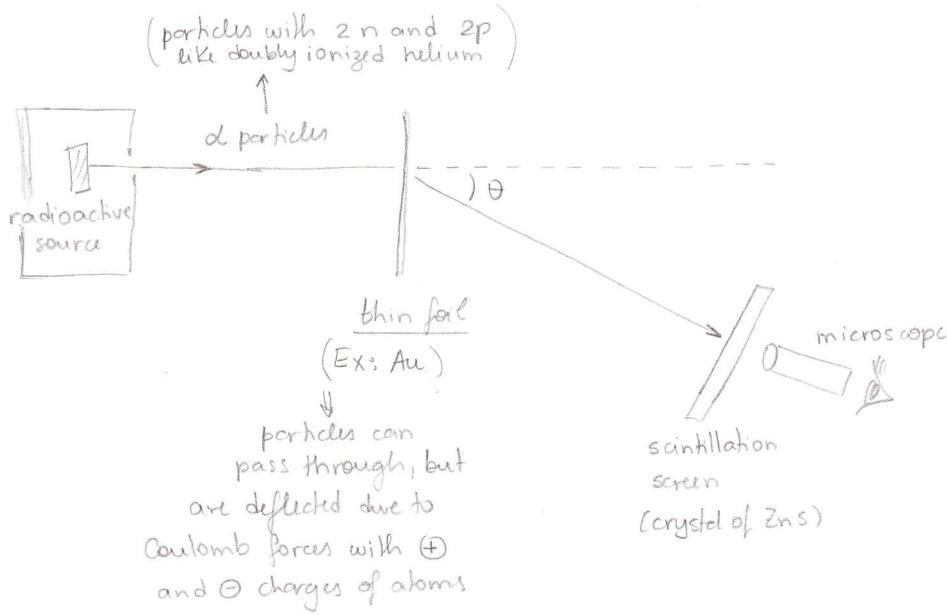 (particles with 2n and 2p
like doubly ionized helium)
α particles
θ
radioactive
source
thin foil
(Ex: Au)
⇓
particles can
pass through, but
are deflected due to
Coulomb forces with ⊕
and ⊖ charges of atoms
microscope
scintillation
screen
(crystal of ZnS)